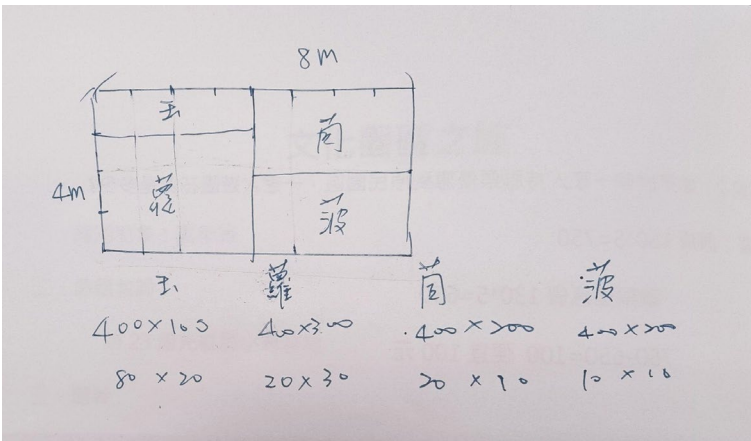 8m
玉 茼
4m 蘿 菠
玉 蘿 茼 菠
400×100 400×300 400×200 400×200
80×20 20×30 20×10 10×10